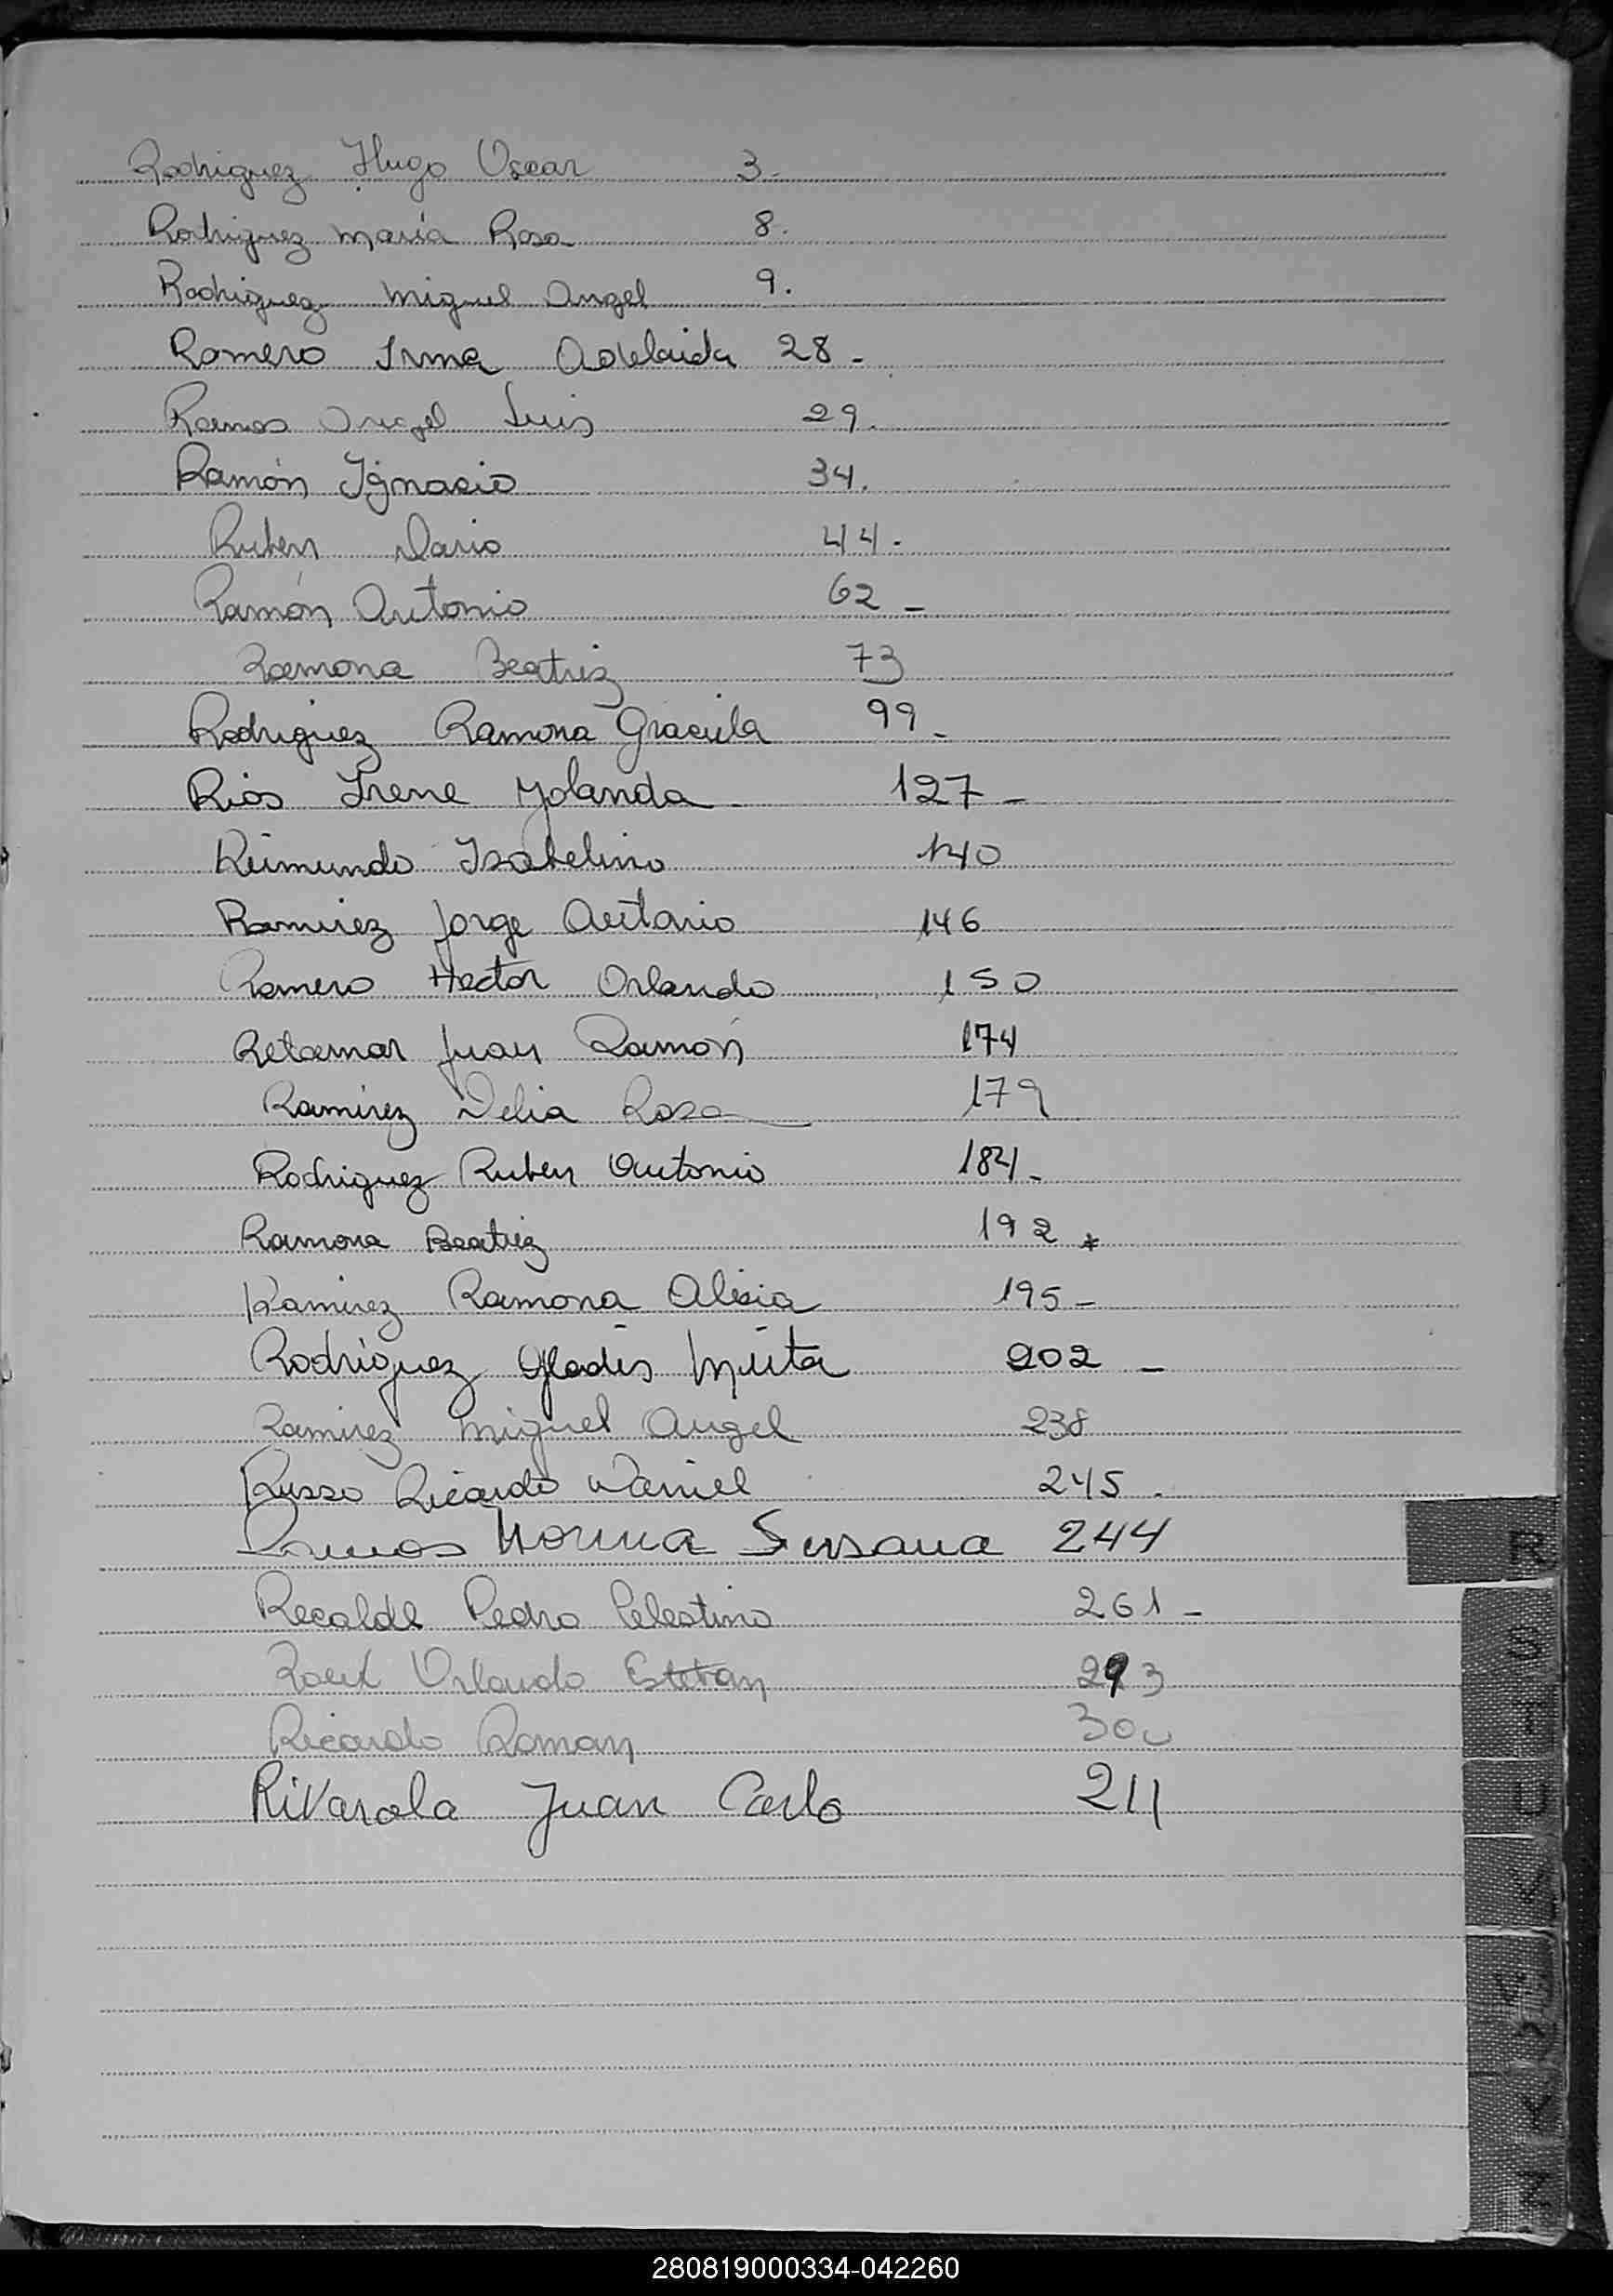 Rodriguez Hugo Oscar 3.
Rodriguez maria Rosa 8.
Rodriguez Miguel Angel 9.
Romero Irma Adelaida 28 -
Ramos Angel Luis 29.
Ramón Ignacio 34.
Ruben Dario 44.
Ramón Antonio 62 -
Ramona Beatriz 73
Rodriguez Ramona Graciela 99 -
Rios Irene Yolanda 127 -
Reimundo Isabelino 140
Ramirez Jorge Antonio 146
Romero Hector Orlando 150
Retamar Juan Ramón 174
Ramirez Delia Rosa 179
Rodriguez Ruben Antonio 184 -
Ramona Beatriz 192 *
Ramirez Ramona Alicia 195 -
Rodriguez Gladis Mirta 202 -
Ramirez Miguel Angel 238
Russo Ricardo Daniel 245.
Ramos Norma Susana 244
Recalde Pedro Celestino 261 -
Orlando Esteban 293
Ricardo Roman 300
Rivarola Juan Carlo 211
R
S
280819000334-042260